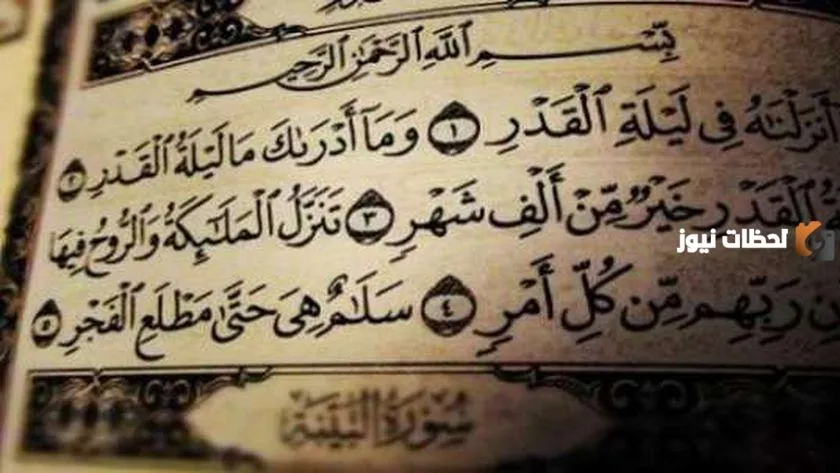 بِسْمِ ٱللَّهِ ٱلرَّحْمَٰنِ ٱلرَّحِيمِ
أَنزَلْنَٰهُ فِى لَيْلَةِ ٱلْقَدْرِ ١ وَمَآ أَدْرَىٰكَ مَا لَيْلَةُ ٱلْقَدْرِ ٢
ٱلْقَدْرِ خَيْرٌ مِّنْ أَلْفِ شَهْرٍ ٣ تَنَزَّلُ ٱلْمَلَٰٓئِكَةُ وَٱلرُّوحُ فِيهَا
رَبِّهِم مِّن كُلِّ أَمْرٍ ٤ سَلَٰمٌ هِىَ حَتَّىٰ مَطْلَعِ ٱلْفَجْرِ ٥
سُورَةُ البَيِّنَةِ
لحظات نيوز